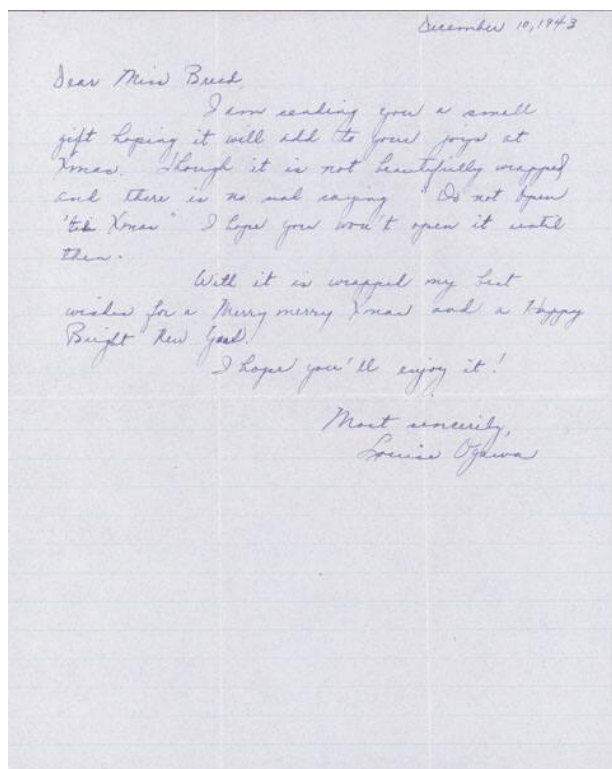 December 10, 1943
Dear Miss Breed,
I am sending you a small
gift hoping it will add to your joys at
Xmas. Though it is not beautifully wrapped
and there is no seal saying "Do not Open
'til Xmas" I hope you won't open it until
then.
With it is wrapped my best
wishes for a Merry merry Xmas and a Happy
Bright New Year.
I hope you'll enjoy it!
Most sincerely,
Louise Ogawa